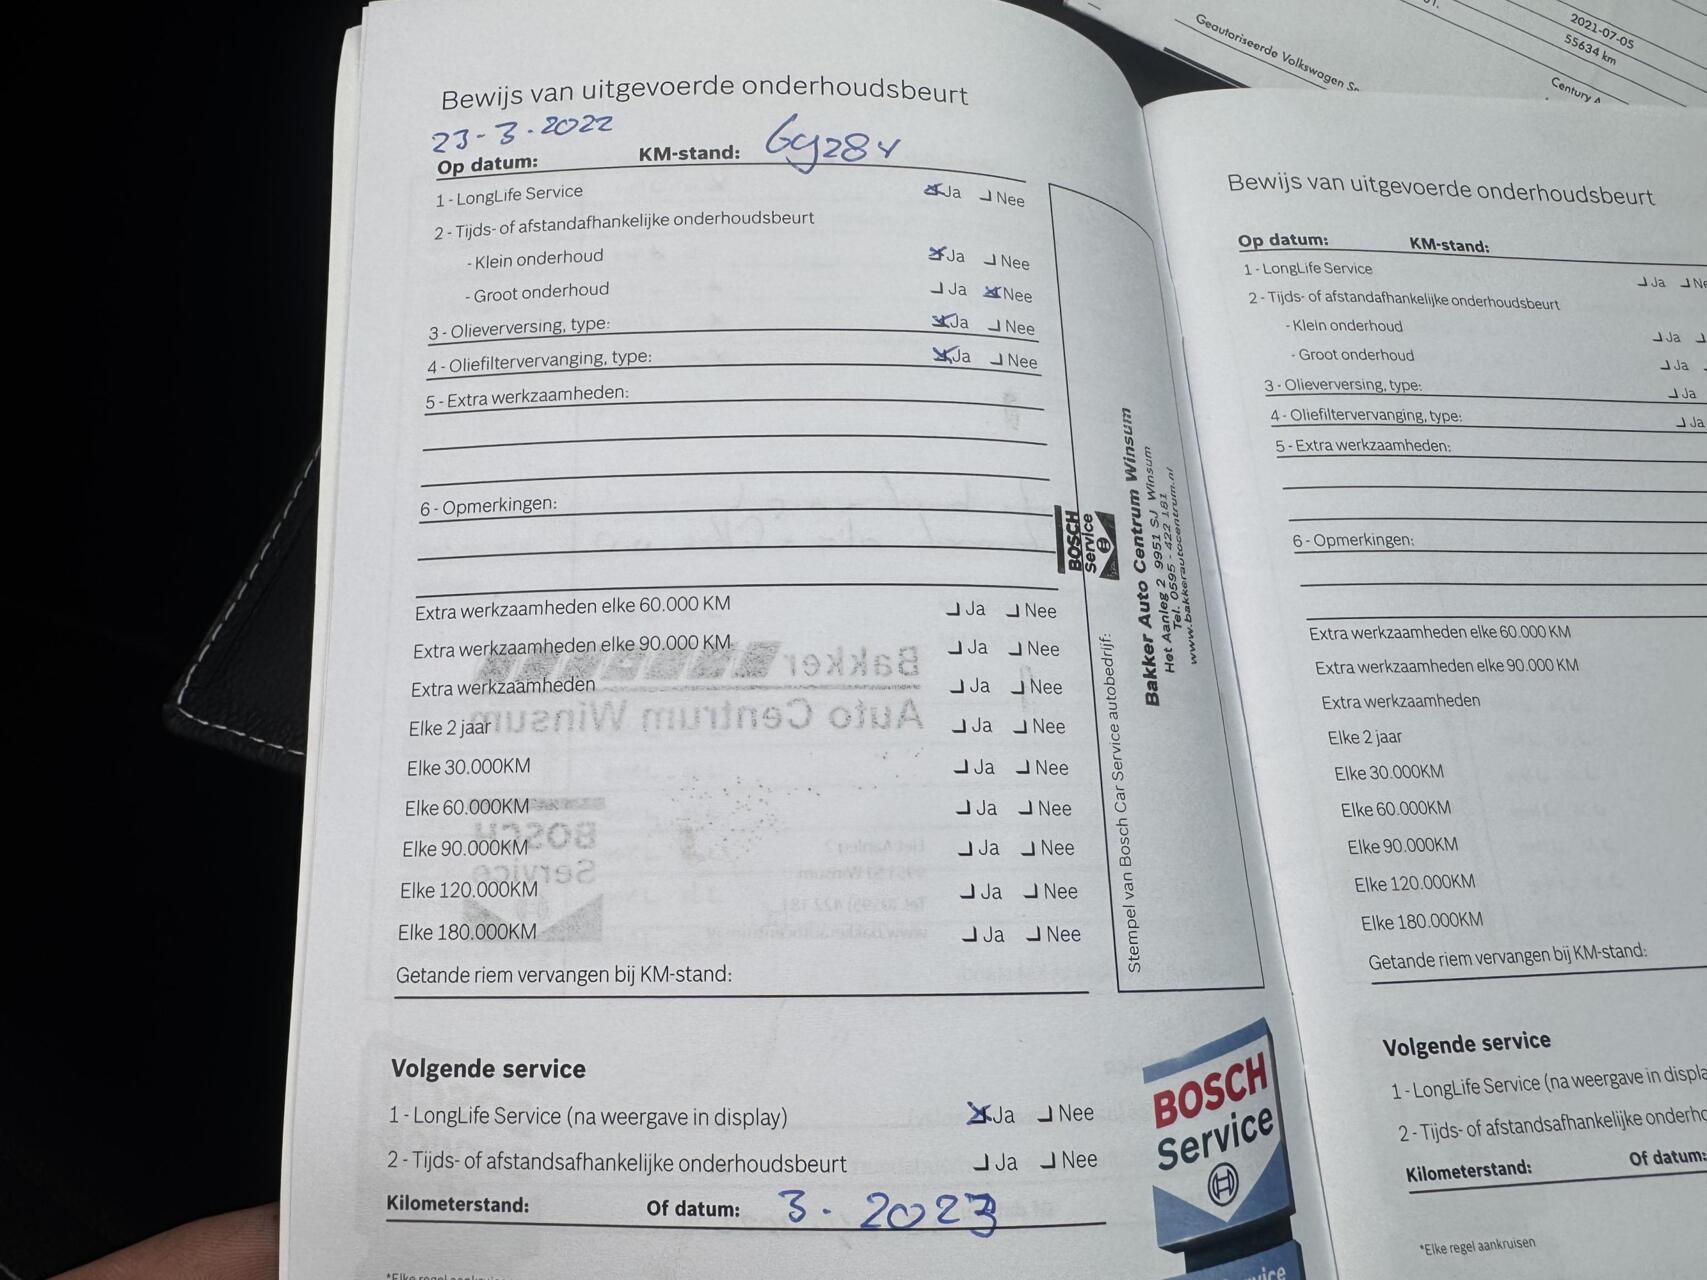 Bewijs van uitgevoerde onderhoudsbeurt
23-3-2022
Op datum: KM-stand: 69284
1 - LongLife Service Ja Nee
2 - Tijds- of afstandafhankelijke onderhoudsbeurt
- Klein onderhoud Ja Nee
- Groot onderhoud Ja Nee
3 - Olieverversing, type: Ja Nee
4 - Oliefiltervervanging, type: Ja Nee
5 - Extra werkzaamheden:
6 - Opmerkingen:
Extra werkzaamheden elke 60.000 KM Ja Nee
Extra werkzaamheden elke 90.000 KM Ja Nee
Extra werkzaamheden Ja Nee
Elke 2 jaar Ja Nee
Elke 30.000KM Ja Nee
Elke 60.000KM Ja Nee
Elke 90.000KM Ja Nee
Elke 120.000KM Ja Nee
Elke 180.000KM Ja Nee
Getande riem vervangen bij KM-stand:
Stempel van Bosch Car Service autobedrijf:
BOSCH
Service
Bakker Auto Centrum Winsum
Het Aanleg 2 9951 SJ Winsum
Tel. 0595 - 422 181
www.bakkerautocentrum.nl
Volgende service
1 - LongLife Service (na weergave in display) Ja Nee
2 - Tijds- of afstandsafhankelijke onderhoudsbeurt Ja Nee
Kilometerstand: Of datum: 3. 2023
*Elke regel aankruisen
BOSCH
Service
2021-07-05
55634 km
Geautoriseerde Volkswagen
Century
Bewijs van uitgevoerde onderhoudsbeurt
Op datum: KM-stand:
1 - LongLife Service Ja
2 - Tijds- of afstandafhankelijke onderhoudsbeurt
- Klein onderhoud Ja
- Groot onderhoud Ja
3 - Olieverversing, type: Ja
4 - Oliefiltervervanging, type: Ja
5 - Extra werkzaamheden:
6 - Opmerkingen:
Extra werkzaamheden elke 60.000 KM
Extra werkzaamheden elke 90.000 KM
Extra werkzaamheden
Elke 2 jaar
Elke 30.000KM
Elke 60.000KM
Elke 90.000KM
Elke 120.000KM
Elke 180.000KM
Getande riem vervangen bij KM-stand:
Volgende service
1 - LongLife Service (na weergave in
2 - Tijds- of afstandsafhankelijke
Kilometerstand: Of datum:
*Elke regel aankruisen